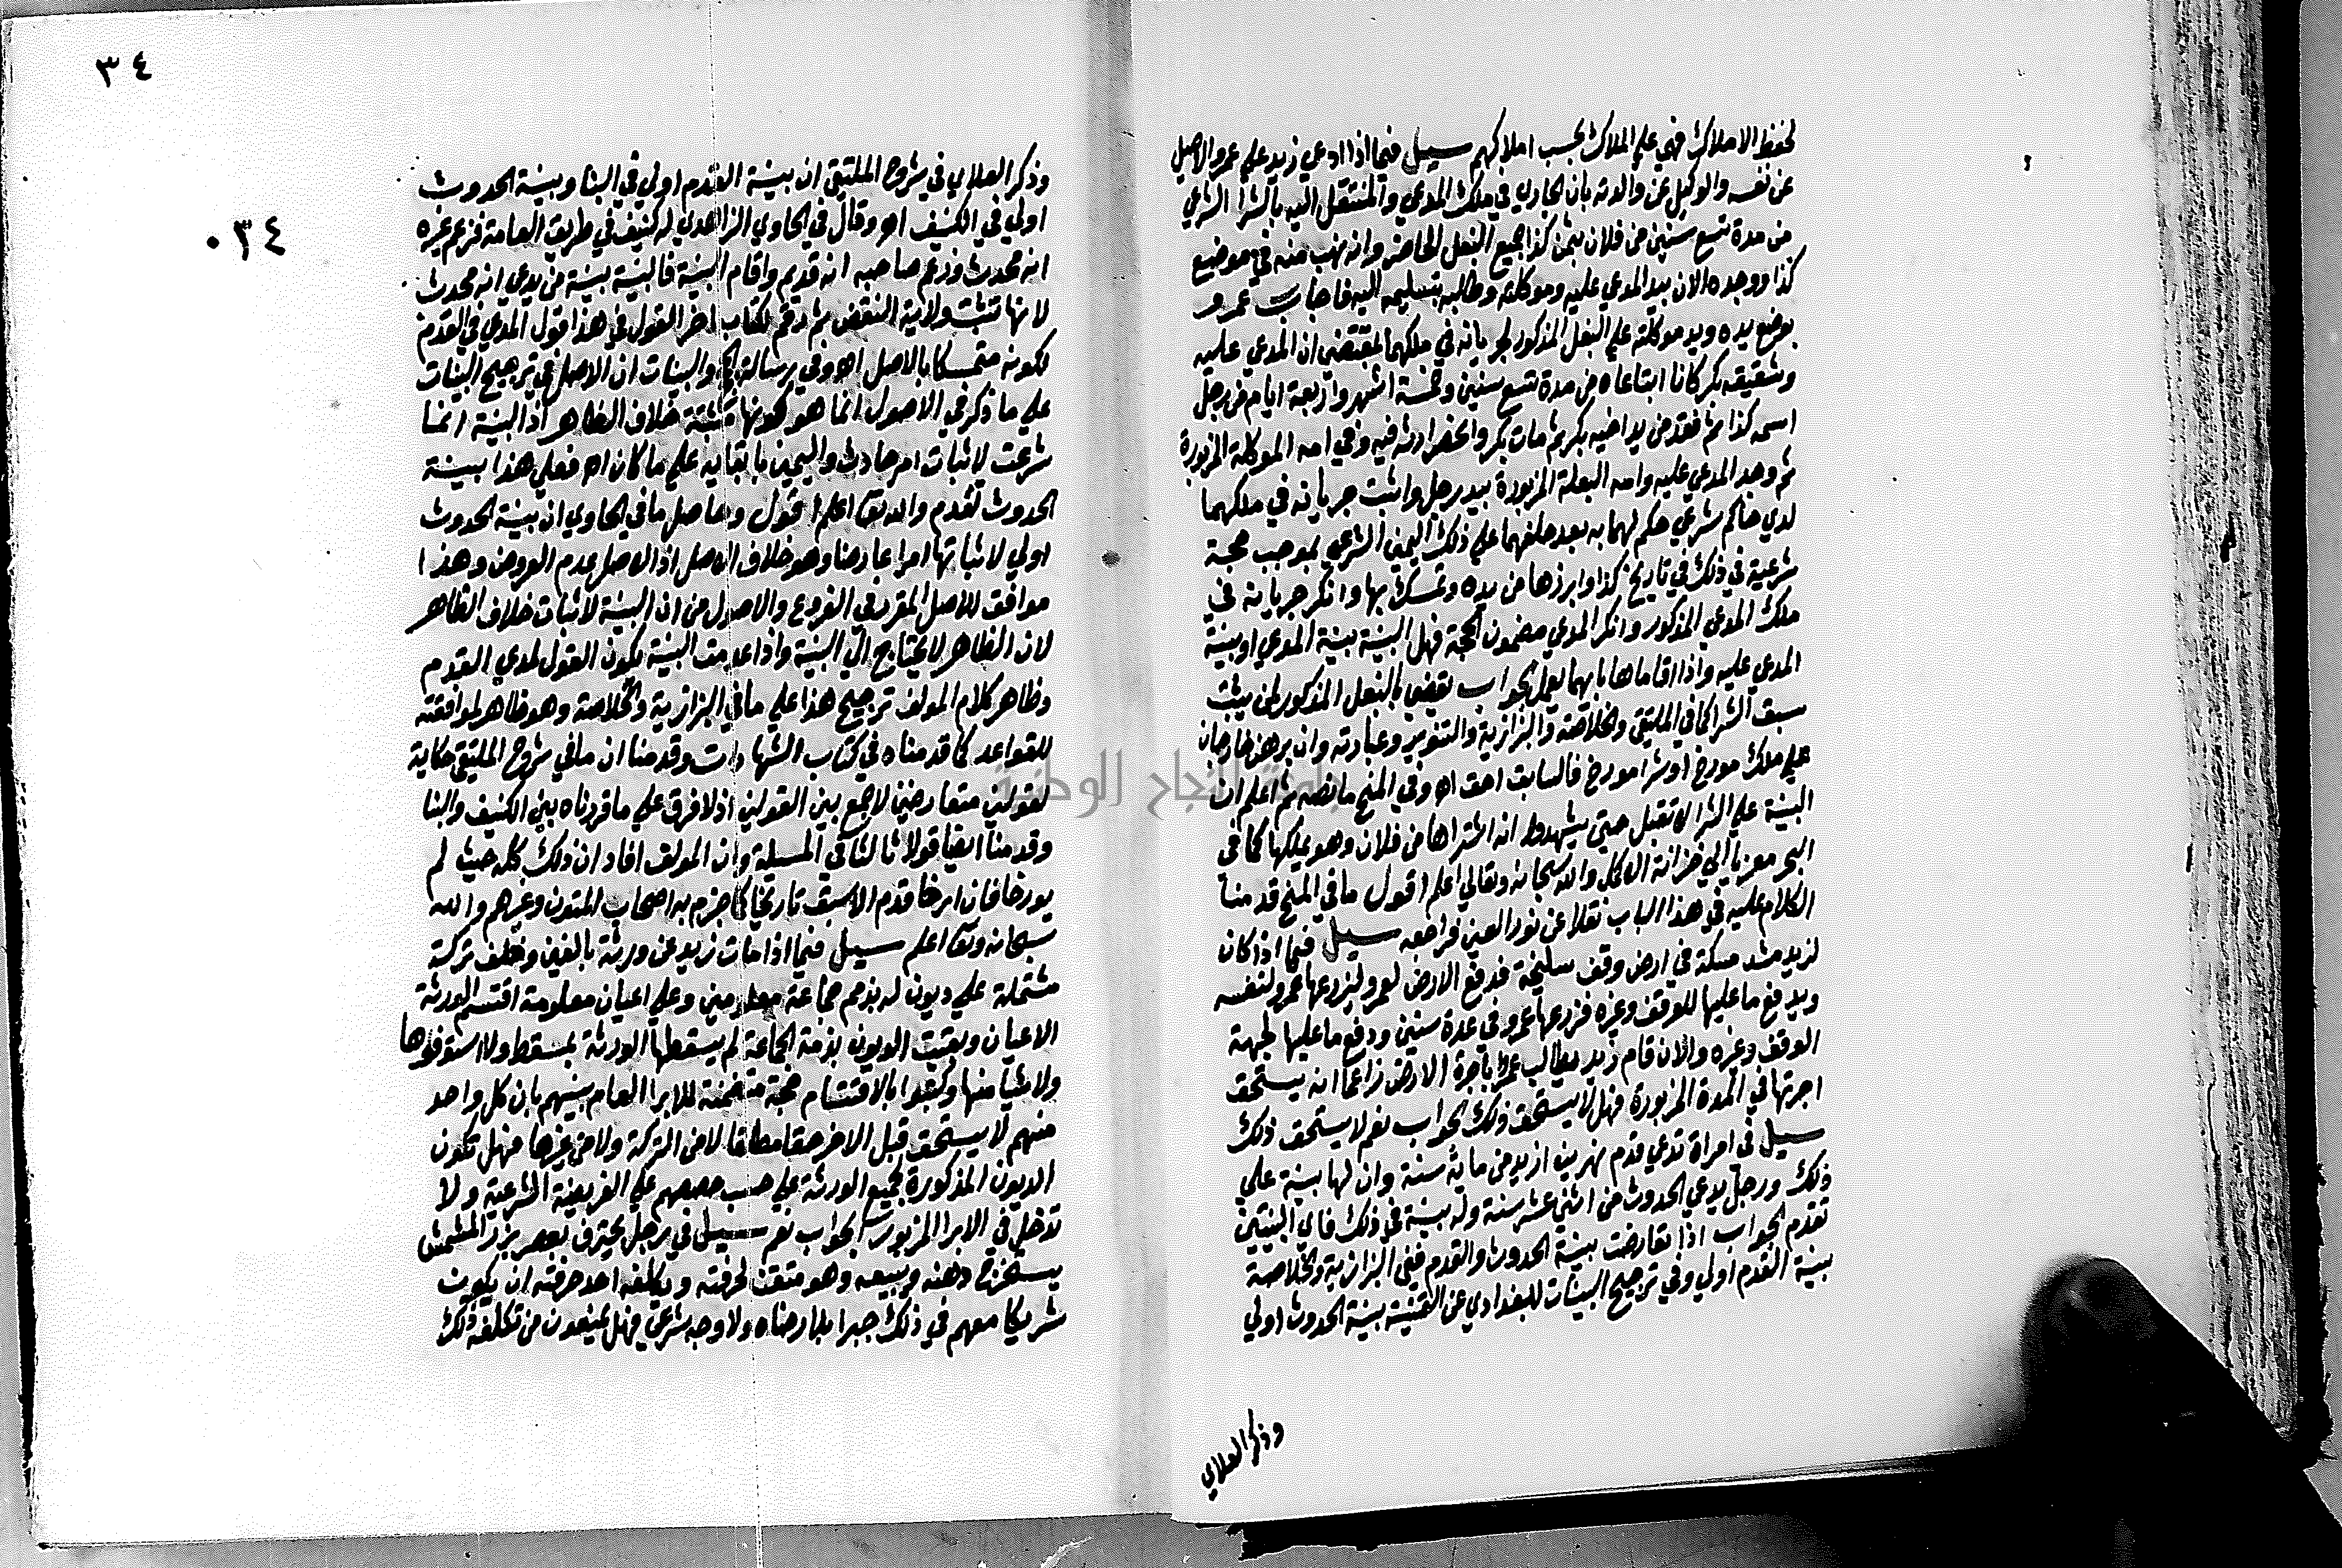 لحفظ الاملاك فهي علي الملاك بحسب املاكهم سيل فيما اذا ادعي زيد علي عمرو الاصيل
عن نفسه والوكيل عن والدته بانه الجاري في ملك المدعي والمنتقل اليه بالشرا الشرعي
من مدة تسع سنين من فلان بثمن كذا جميع البغل الحاضر وانه نهب منه في موضع
كذا ووجده الان بيد المدعي عليه وموكلته وطالبه بتسليمه اليه فاجاب عمرو
بوضع يده ويد موكلته علي البغل المذكور لجريانه في ملكهما بمقتضي ان المدعي عليه
وشقيقه بكر كانا ابتاعاه من مدة تسع سنين وخمسة اشهر واربعة ايام من رجل
اسمه كذا ثم فقد من يد اخيه بكر ثم مات بكر وانحصر ارثه فيه وفي امه الموكلة المزبورة
ثم وجد المدعي عليه وامه البغلة المزبورة بيد رجل واثبت جريانه في ملكهما
لدي حاكم شرعي حكم لهما به بعد حلفهما علي ذلك اليمين الشرعي بموجب حجة
شرعية في ذلك في تاريخ كذا وابرزها من يده وتمسك بها وانكر جريانه في
ملك المدعي المذكور وانكر المدعي مضمون الحجة فهل البينة بينة المدعي او بينة
المدعي عليه واذا اقاماها بايهما يعمل الجواب يقضي بالبغل المذكور لمن يثبت
سبق الشرا كما في الملتقي والخلاصة والبزازية والتنوير وعبارته وان برهن خارجان
علي ملك مورخ او شرا مورخ فالسابق احق اه وفي المنح ما نصه ثم اعلم ان
البينة علي الشرا لا تقبل حتي يشهدوا انه اشتراها من فلان وهو يملكها كما في
البحر معزيا الي خزانة الاكمل والله سبحانه وتعالي اعلم اقول ما في المنح قدمنا
الكلام عليه في هذا الباب نقلا عن نور العين فراجعه سيل فيما اذا كان
لزيد مشد مسكة في ارض وقف سليخة فدفع الارض لعمرو ليزرعها عمرو لنفسه
ويدفع ما عليها للوقف وغيره فزرعها عمرو في عدة سنين ودفع ما عليها لجهة
الوقف وغيره والان قام زيد يطالب عمرا باجرة الارض زاعما انه يستحق
اجرتها في المدة المزبورة فهل لا يستحق ذلك الجواب نعم لا يستحق ذلك
سيل في امراة تدعي قدم نهرين ازيد من ماية سنة وان لها بينة علي
ذلك ورجل يدعي الحدوث من اثني عشر سنة وله بينة في ذلك فاي البينتين
تقدم الجواب اذا تعارضت بينة الحدوث والقدم ففي البزازية والخلاصة
بينة القدم اولي وفي ترجيح البينات للبغدادي عن القنية بينة الحدوث اولي
وذكر العلاي
٣٤
٠٣٤
وذكر العلاي في شروح الملتقي ان بينة القدم اولي في البنا وبينة الحدوث
اولي في الكنيف اه وقال في الحاوي الزاهدي له كنيف في طريق العامة فزعم غيره
انه محدث وزعم صاحبه انه قديم واقام البينة فالبينة بينة من يدعي انه محدث
لانها تثبت ولاية النقض ثم رقم لكتاب اخر القول في هذا قول المدعي في القدم
لكونه متمسكا بالاصل اه وفي رسالة والبينات ان الاصل في ترجيح البينات
علي ما ذكر في الاصول انما هو كونها مثبتة خلاف الظاهر اذ البينة انما
شرعت لاثبات امر حادث واليمين بابقايه علي ما كان اه فعلي هذا بينة
الحدوث تقدم والله تعا اعلم اقول وحاصل ما في الحاوي ان بينة الحدوث
اولي لاثباتها امرا عارضا وهو خلاف الاصل اذ الاصل عدم العروض وهذا
موافق للاصل المقرر في الفروع والاصول من ان البينة لاثبات خلاف الظاهر
لان الظاهر لا يحتاج الي البينة واذا عدمت البينة يكون القول لمدعي القدم
وظاهر كلام المولف ترجيح هذا علي ما في البزازية والخلاصة وهو ظاهر لموافقته
للقواعد كما قدمناه في كتاب الشهادات وقدمنا ان ما في شروح الملتقي حكاية
لقولين متعارضين لا جمع بين القولين اذ لا فرق علي ما قررناه بين الكنيف والبنا
وقدمنا ايضا قولا ثالثا في المسيلة وان المولف افاد ان ذلك كله حيث لم
يورخا فان ارخا قدم الاسبق تاريخا كما جزم به اصحاب المتون وغيرهم والله
سبحانه وتعا اعلم سيل فيما اذا مات زيد عن ورثة بالغين وخلف تركة
مشتملة علي ديون له بذمم جماعة معلومين وعلي اعيان معلومة اقتسم الورثة
الاعيان وبقيت الديون بذمة الجماعة لم يسقطها الورثة بمسقط ولا استوفوها
ولا شيا منها وكتبوا بالاقتسام حجة متضمنة للابرا العام بينهم بان كل واحد
منهم لا يستحق قبل الاخر حقا مطلقا لا من التركة ولا من غيرها فهل تكون
الديون المذكورة لجميع الورثة علي حسب حصصهم علي الفريضة الشرعية ولا
تدخل في الابرا المزبور الجواب نعم سيل في رجل يحترف بعصر بزر المشمش
يستخرج دهنه ويبيعه وهو متقن لحرفته ويكلفه اهد حرفته ان يكون
شريكا معهم في ذلك جبرا بلا رضاه ولا وجه شرعي فهل يمنعون من تكلفه ذلك